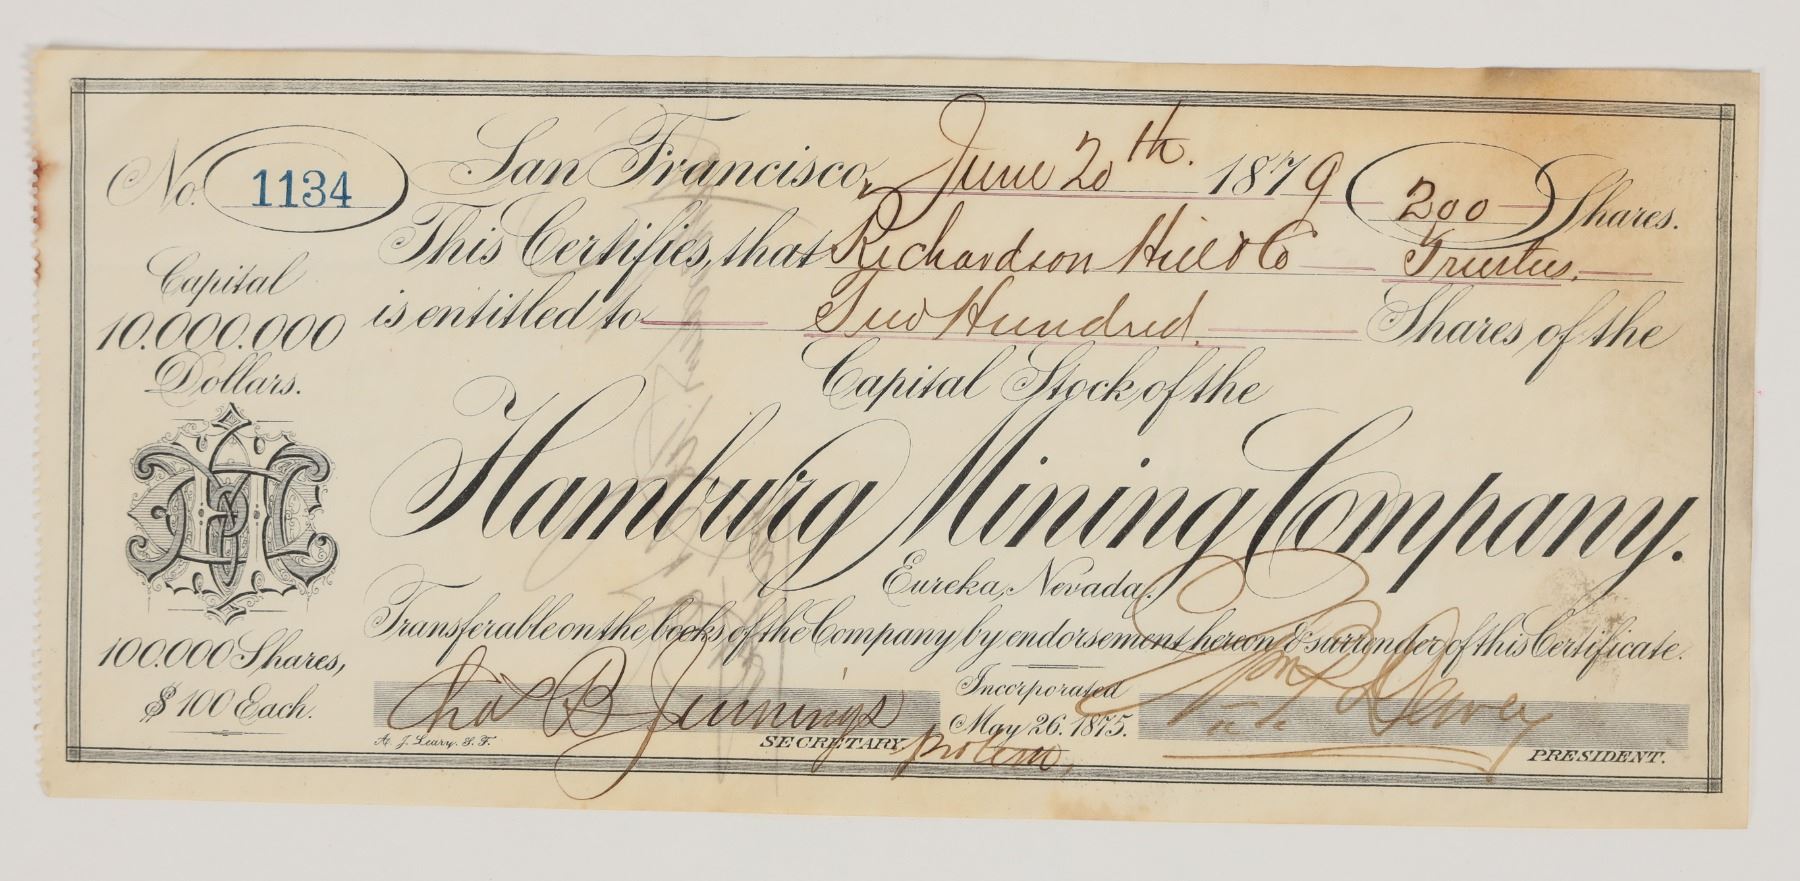 No. 1134 San Francisco, June 20th. 1879 200 Shares.
This Certifies, that Richardson Hill & Co Trustees.
is entitled to Two Hundred Shares of the
Capital Stock of the
Hamburg Mining Company.
Eureka, Nevada.
Transferable on the books of the Company by endorsement hereon & surrender of this Certificate.
Capital
10.000.000
Dollars.
HMC
100.000 Shares,
$100 Each.
Chas B Jennings
A. J. Leary. S. F.
SECRETARY. protem.
Incorporated
May 26. 1875.
Dewey
PRESIDENT.